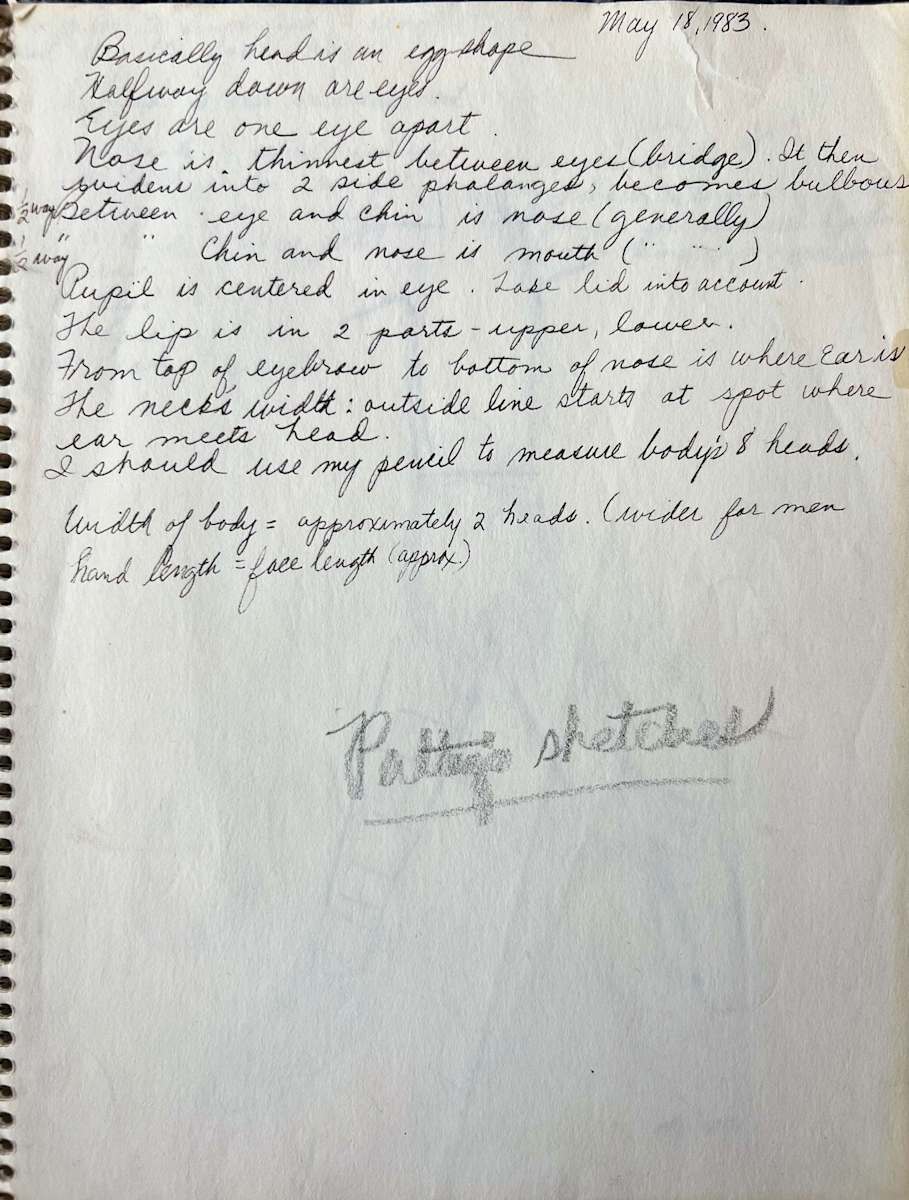 May 18, 1983.
Basically head is an egg shape
Halfway down are eyes.
Eyes are one eye apart.
Nose is thinnest between eyes (bridge). It then
widens into 2 side phalanges, becomes bulbous
1/2 way Between eye and chin is nose (generally)
1/2 way " " Chin and nose is mouth ( " " )
Pupil is centered in eye. Take lid into account.
The lip is in 2 parts - upper, lower.
From top of eyebrow to bottom of nose is where Ear is
The neck's width: outside line starts at spot where
ear meets head.
I should use my pencil to measure body's 8 heads.
Width of body = approximately 2 heads. (wider for men
hand length = face length (approx.)
Patty's sketches